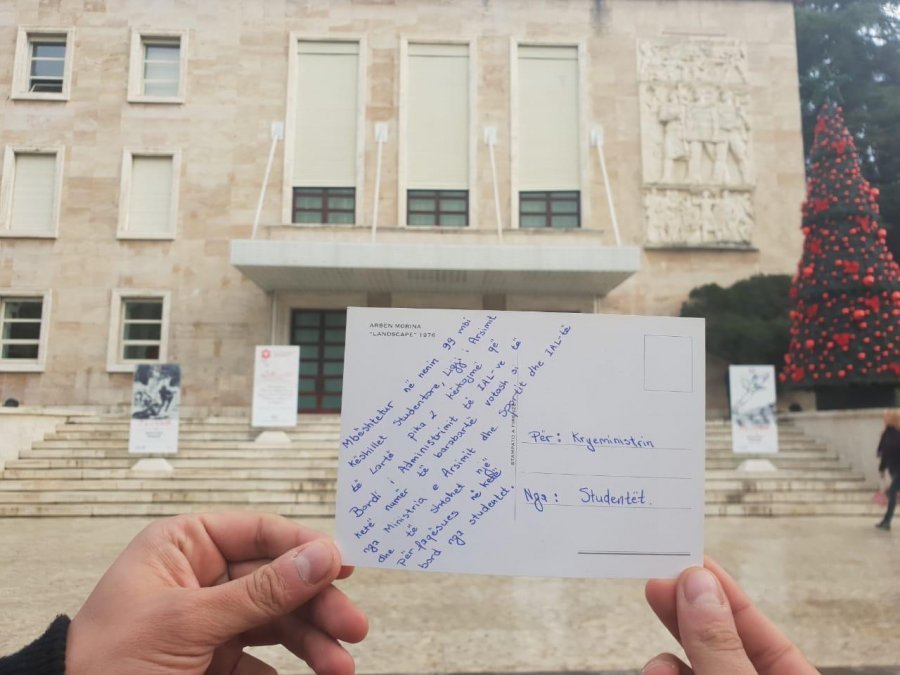 ARBEN MORINA
"LANDSCAPE" 1976
Mbështetur në nenin 99 mbi
këshillet Studentore, Ligji i Arsimit
të Lartë pika 2 kërkojmë që
Bordi i Administrimit të IAL-ve të
ketë numër të barabartë votash si
nga Ministria e Arsimit dhe Sportit dhe IAL-të
dhe të shtohet një
Përfaqësues në këtë
bord nga studentët.
STAMPATO A
Për: Kryeministrin
Nga: Studentët.